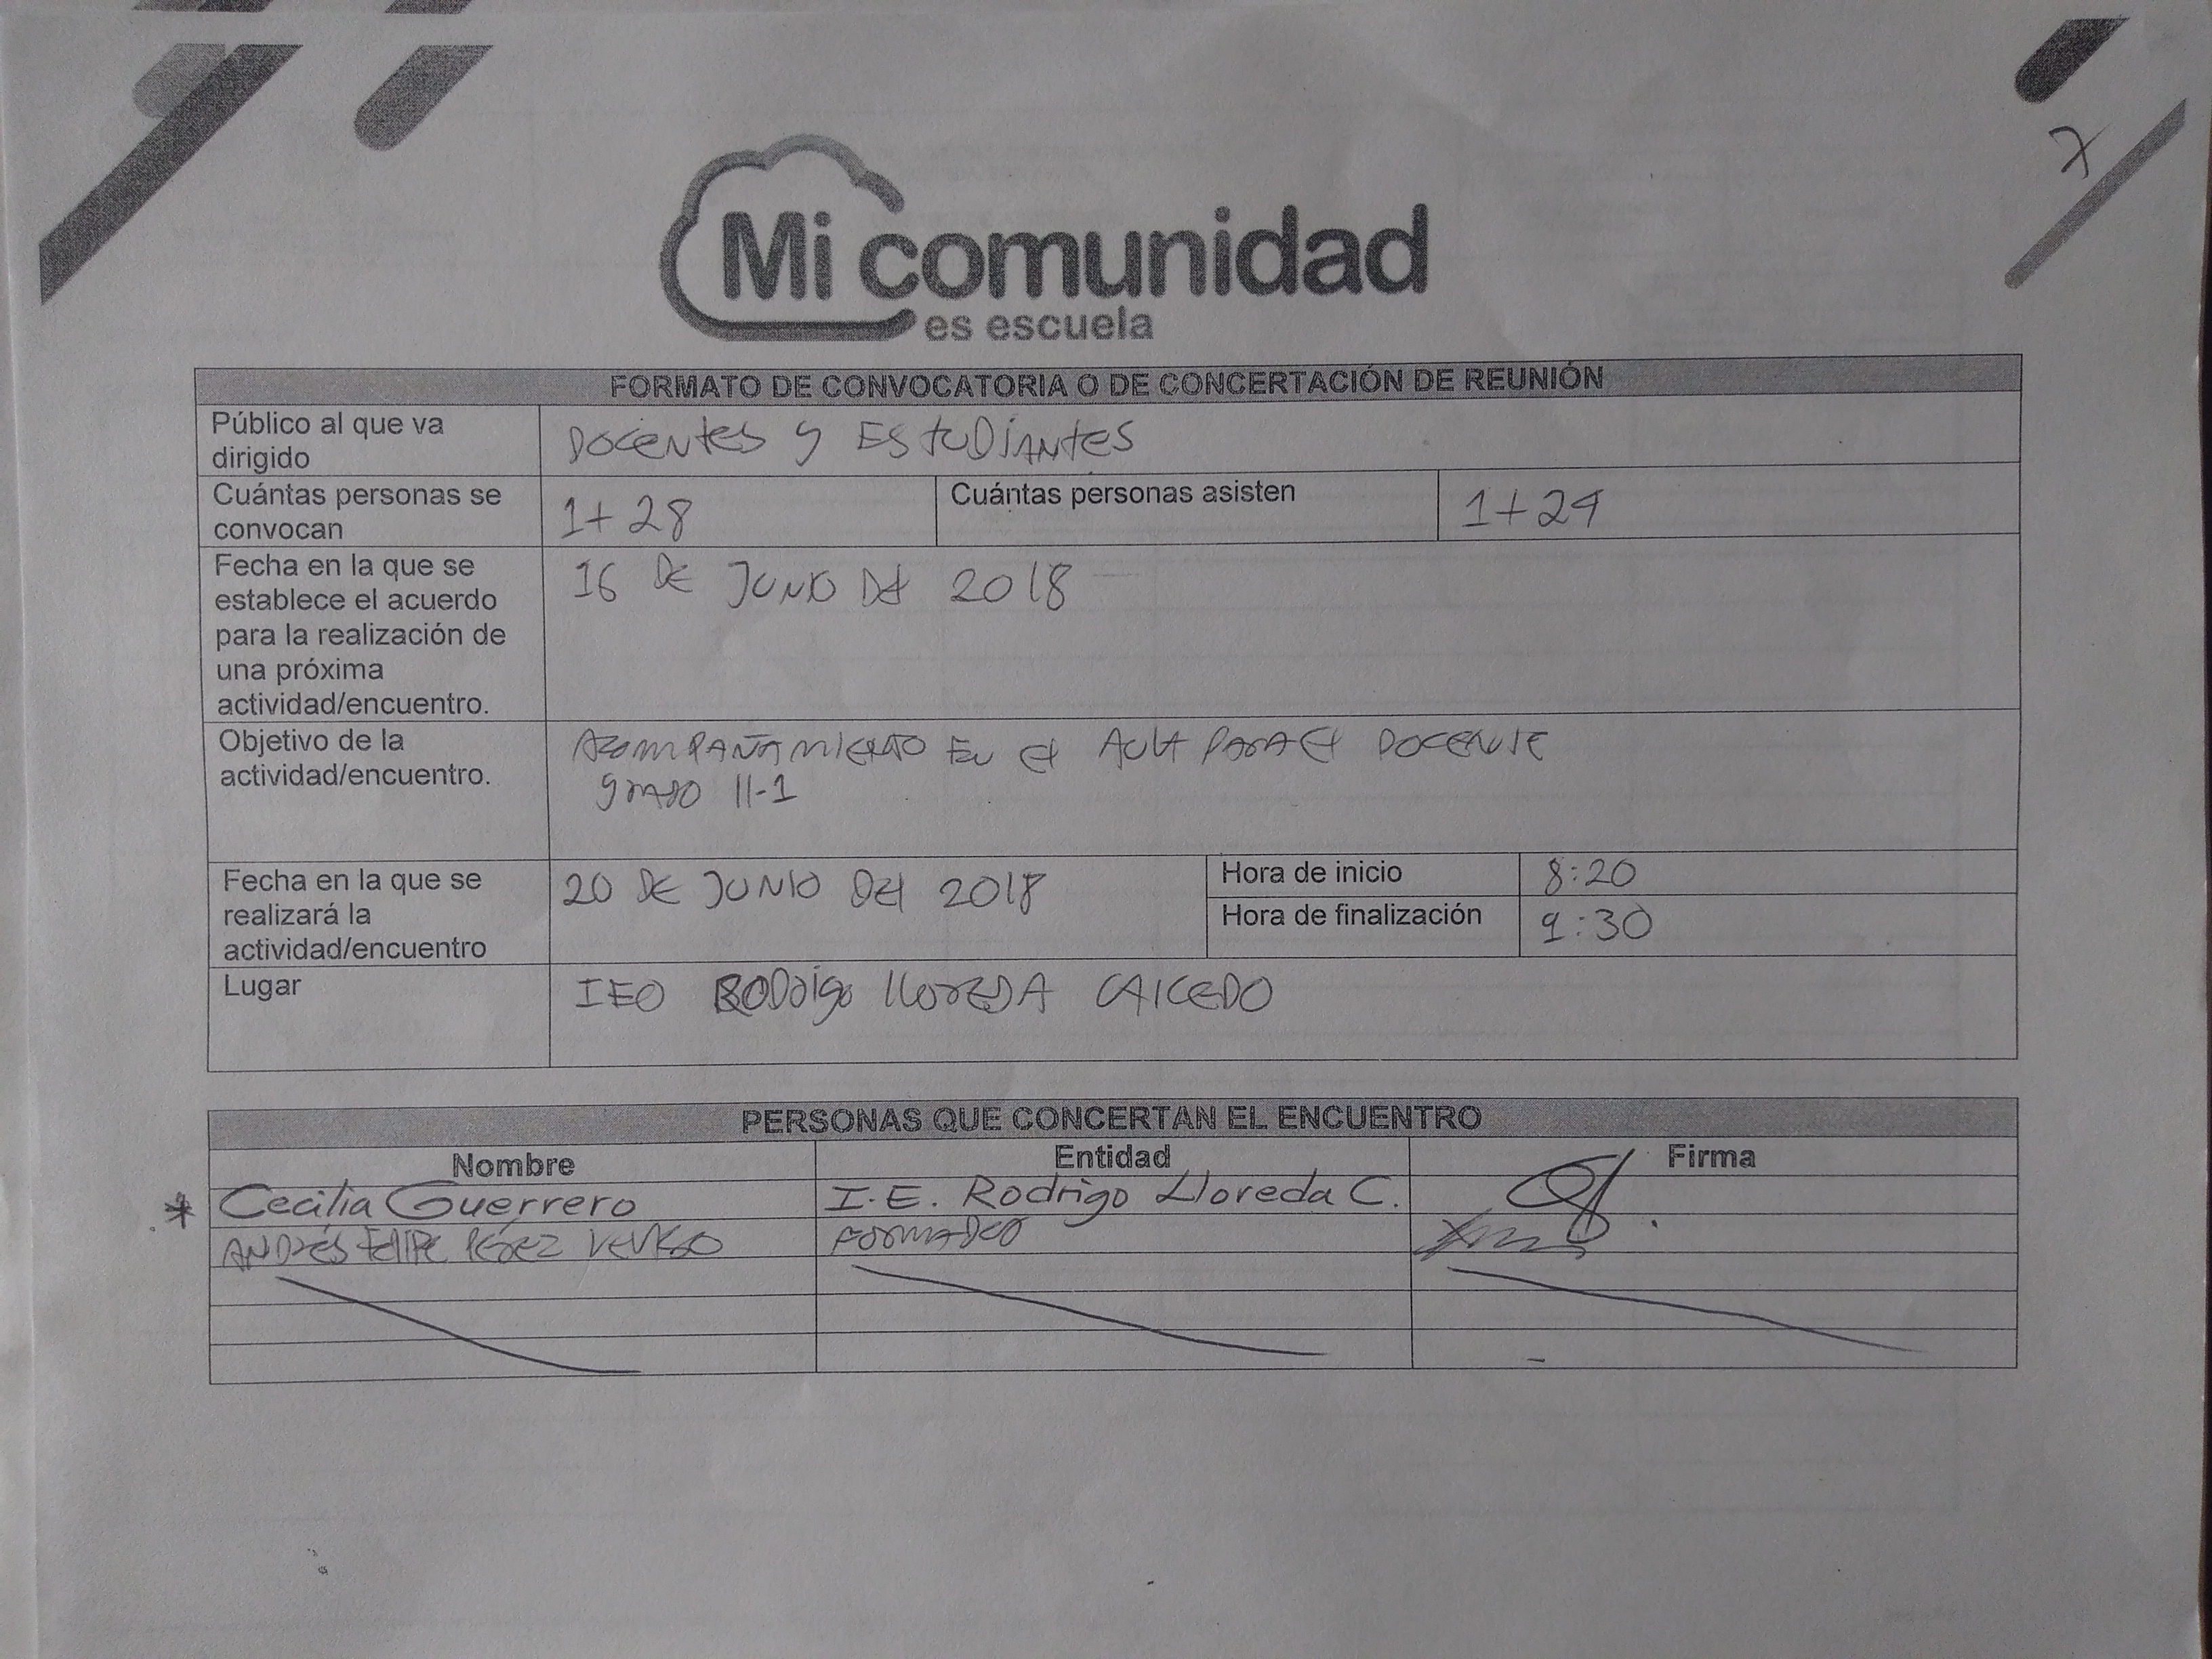 7
Mi comunidad
es escuela
FORMATO DE CONVOCATORIA O DE CONCERTACIÓN DE REUNIÓN
Público al que va
dirigido
DOCENTES Y ESTUDIANTES
Cuántas personas se
convocan
1+28
Cuántas personas asisten
1+24
Fecha en la que se
establece el acuerdo
para la realización de
una próxima
actividad/encuentro.
16 DE JUNIO DEL 2018
Objetivo de la
actividad/encuentro.
ACOMPAÑAMIENTO EN EL AULA PARA EL DOCENTE
GRADO 11-1
Fecha en la que se
realizará la
actividad/encuentro
20 DE JUNIO DEL 2018
Hora de inicio
8:20
Hora de finalización
9:30
Lugar
IEO RODRIGO LLOREDA CAICEDO
PERSONAS QUE CONCERTAN EL ENCUENTRO
Nombre Entidad Firma
* Cecilia Guerrero I.E. Rodrigo Lloreda C.
ANDRÉS FELIPE PÉREZ FORMADOR